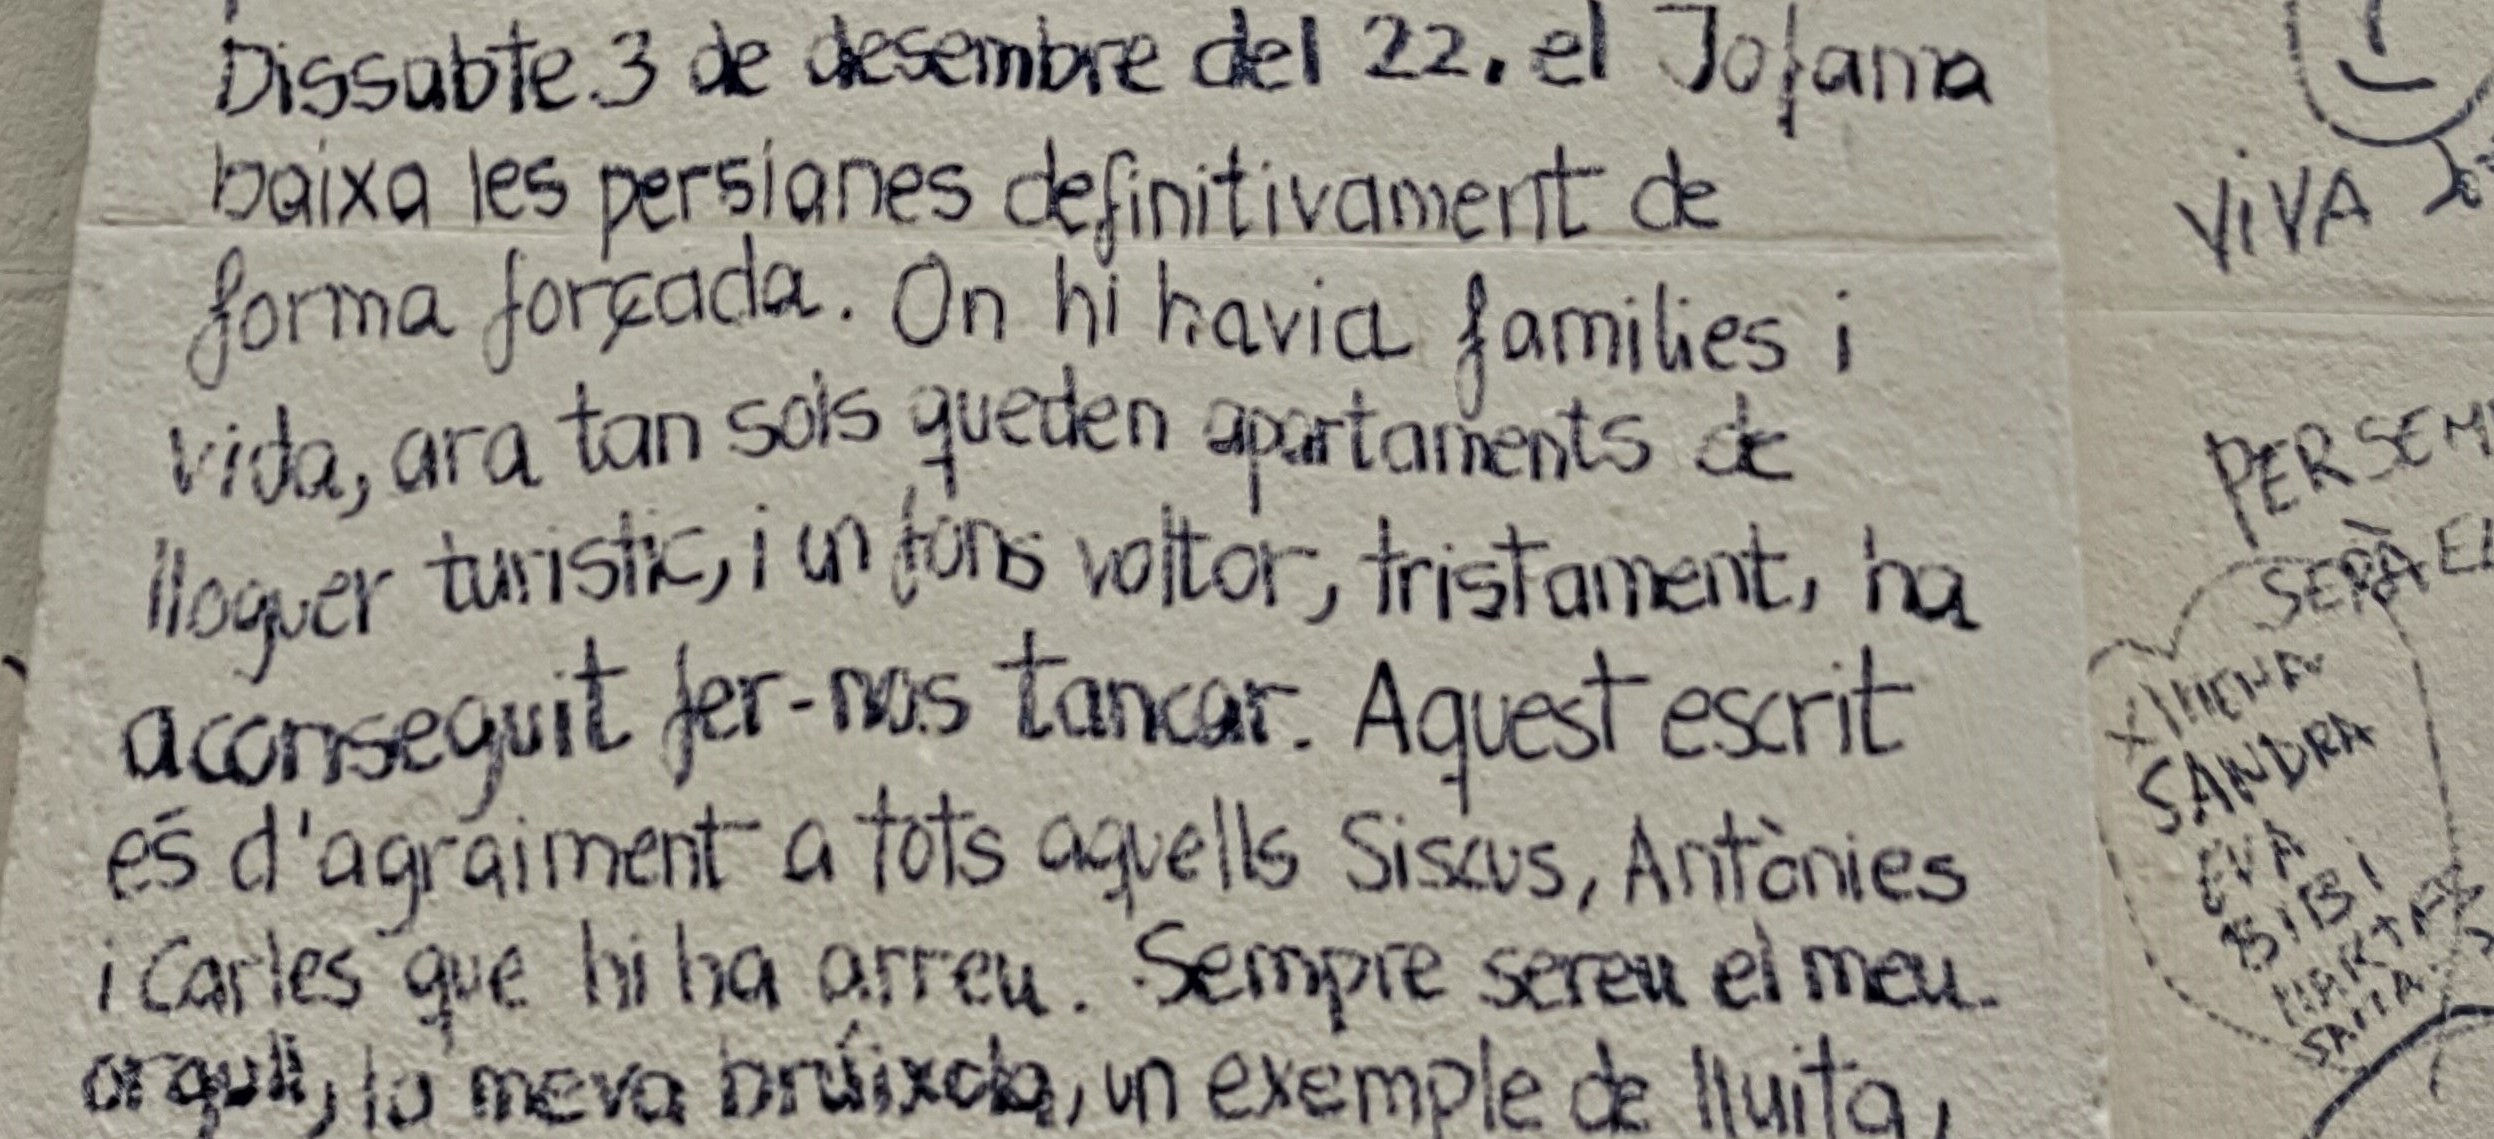 Dissabte 3 de desembre del 22. el Jofama
baixa les persianes definitivament de
forma forçada. On hi havia families i
vida, ara tan sols queden apartaments de
lloguer turistic, i un fons voltor, tristament, ha
aconseguit fer-nos tancar. Aquest escrit
és d'agraiment a tots aquells Siscus, Antònies
i Carles que hi ha arreu. Sempre sereu el meu
orgull, la meva brúixola, un exemple de lluita,
VIVA
PER SEM
SERÀ EL
XIMENA
SANDRA
EVA
BIBI
MARTA